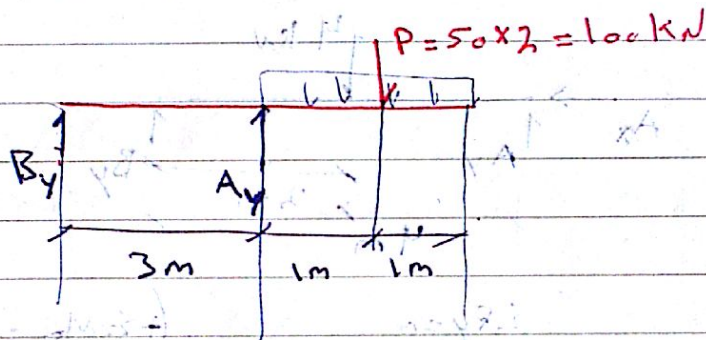 P = 50 × 2 = 100 kN
By
Ay
3 m
1 m
1 m